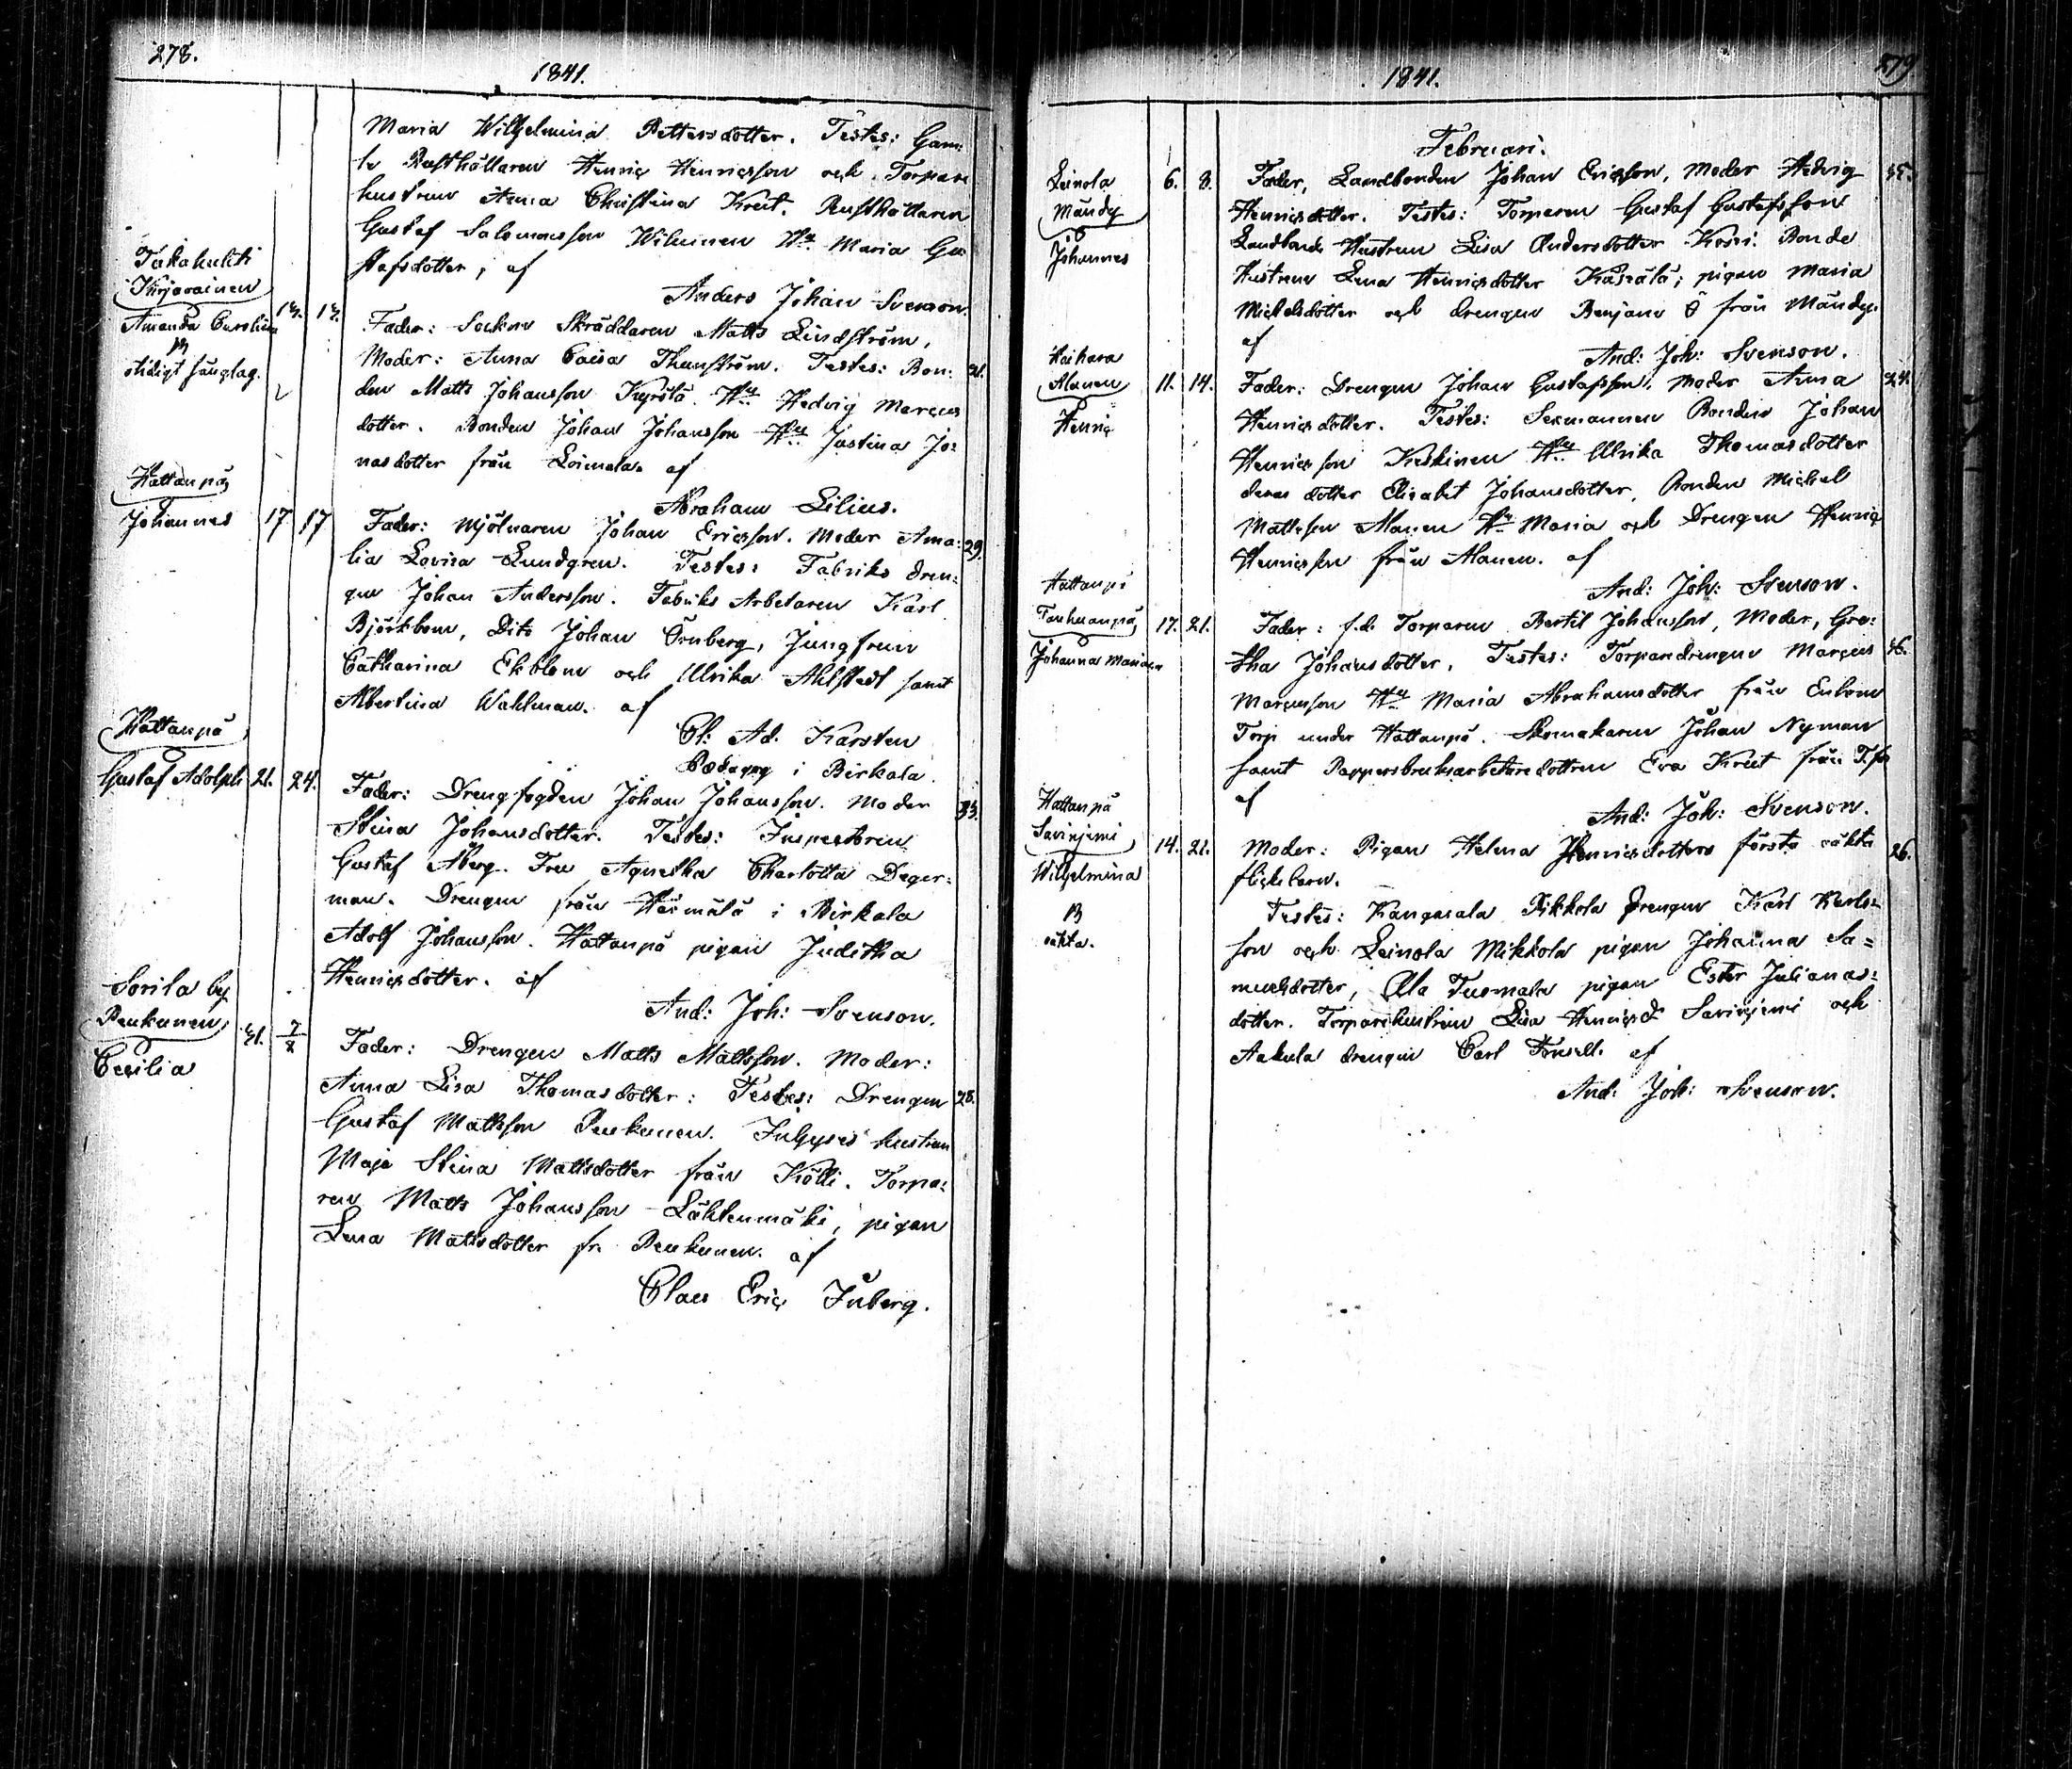 278.
1841.
Maria Wilhelmina Pettersdotter. Testes: Gam:
le Rusthållaren Henric Henricsson och Torpare
hustrun Anna Christina Kreit. Rusthållaren
Gustaf Salomonsson Wihuinen Hu Maria Gu
stafsdotter, af
Anders Johan Svenson.
Takahuhti
Kirjavainen
Amanda Carolina
otidigt sänglag.
Fader: Socken Skräddaren Matts Lindström,
Moder: Anna Caisa Thunström. Testes: Bon: 21.
den Matts Johansson Kyrölä Hu Hedvig Marcus
dotter. Bonden Johan Johansson Hu Justina Jo:
nasdotter från Loimala. af
Abraham Lilius.
Hattanpä
Johannes 17 17 Fader: Mjölnaren Johan Ericsson. Moder Ama: 29.
lia Lovisa Lundgren. Testes: Fabriks dren:
gen Johan Andersson. Fabriks Arbetaren Karl
Björkbom, Dito Johan Örnberg, Jungfrun
Catharina Ekblom och Ulrika Ahlstedt samt
Albertina Wahlman. af
Cl: Ad. Karsten
Pædagog i Birkala.
Hattanpä
Gustaf Adolph 21. 24. Fader: Drengfogden Johan Johansson. Moder 33.
Stina Johansdotter. Testes: Inspectoren
Gustaf Åberg. Fru Agnetha Charlotta Deger:
man. Drengen från Härmälä i Birkala
Adolf Johansson. Hattanpä pigan Juditha
Henricsdotter. af
And: Joh: Svenson.
Sorila by
Penkunen
Cecilia 31. 7/2 Fader: Drengen Matts Mattsson. Moder:
Anna Lisa Thomasdotter: Testes: Drengen 28.
Gustaf Mattsson Penkunen. Inhyses hustrun
Maja Stina Mattsdotter från Kölli. Torpa:
ren Matts Johansson Lähtenmäki, pigan
Lena Mattsdotter fr. Penkunen. af
Claes Eric Inberg.
279
1841.
Februari.
Leinola
Mändy
Johannes
6. 8. Fader, Landbonden Johan Ericsson, Moder Hedvig 35.
Henricsdotter. Testes: Torparen Gustaf Gustafsson
Landbonde Hustrun Lisa Andersdotter Koski. Bonde
Hustrun Lena Henricsdotter Käsälä; pigan Maria
Michelsdotter och drengen Benjam Ö från Mändy.
af
And: Joh: Svenson.
Haihara
Alanen
Henric
11. 14. Fader: Drengen Johan Gustafsson, Moder Anna 24.
Henricsdotter. Testes: Sexmannen Bonden Johan
Henricsson Keskinen Hu Ulrika Thomasdotter
deras dotter Elisabet Johansdotter, Bonden Michel
Mattsson Alanen Hu Maria och Drengen Henric
Henricsson från Alanen. af
And: Joh: Svenson.
Hattanpä
Tanhuanpä
Johanna Maria
17. 21. Fader: f.d. Torparen Bertil Johansson, Moder, Gre:
tha Johansdotter. Testes: Torparedrengen Marcus 46.
Marcusson Hu Maria Abrahamsdotter från
Torp under Hattanpä. Skomakaren Johan Nyman
samt Pappersbruksarbetaredottren Eva Kreit från T:fors
af
And: Joh: Svenson.
Hattanpä
Savinjemi
Wilhelmina
oäkta.
14. 21. Moder: Pigan Helena Henricsdotters första oäkta 26.
flickebarn.
Testes: Kangasala Pikkola Drengen Karl Karls:
son och Leinola Mikkola pigan Johanna Sa=
muelsdotter, Ala Tuomala pigan Ester Julianas:
dotter. Torparehustrun Lisa Henricsd. Savinjemi och
Aakula drengen Carl Fonsell. af
And: Joh: Svenson.